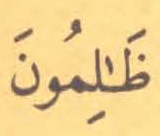 ظَـٰلِمُونَ